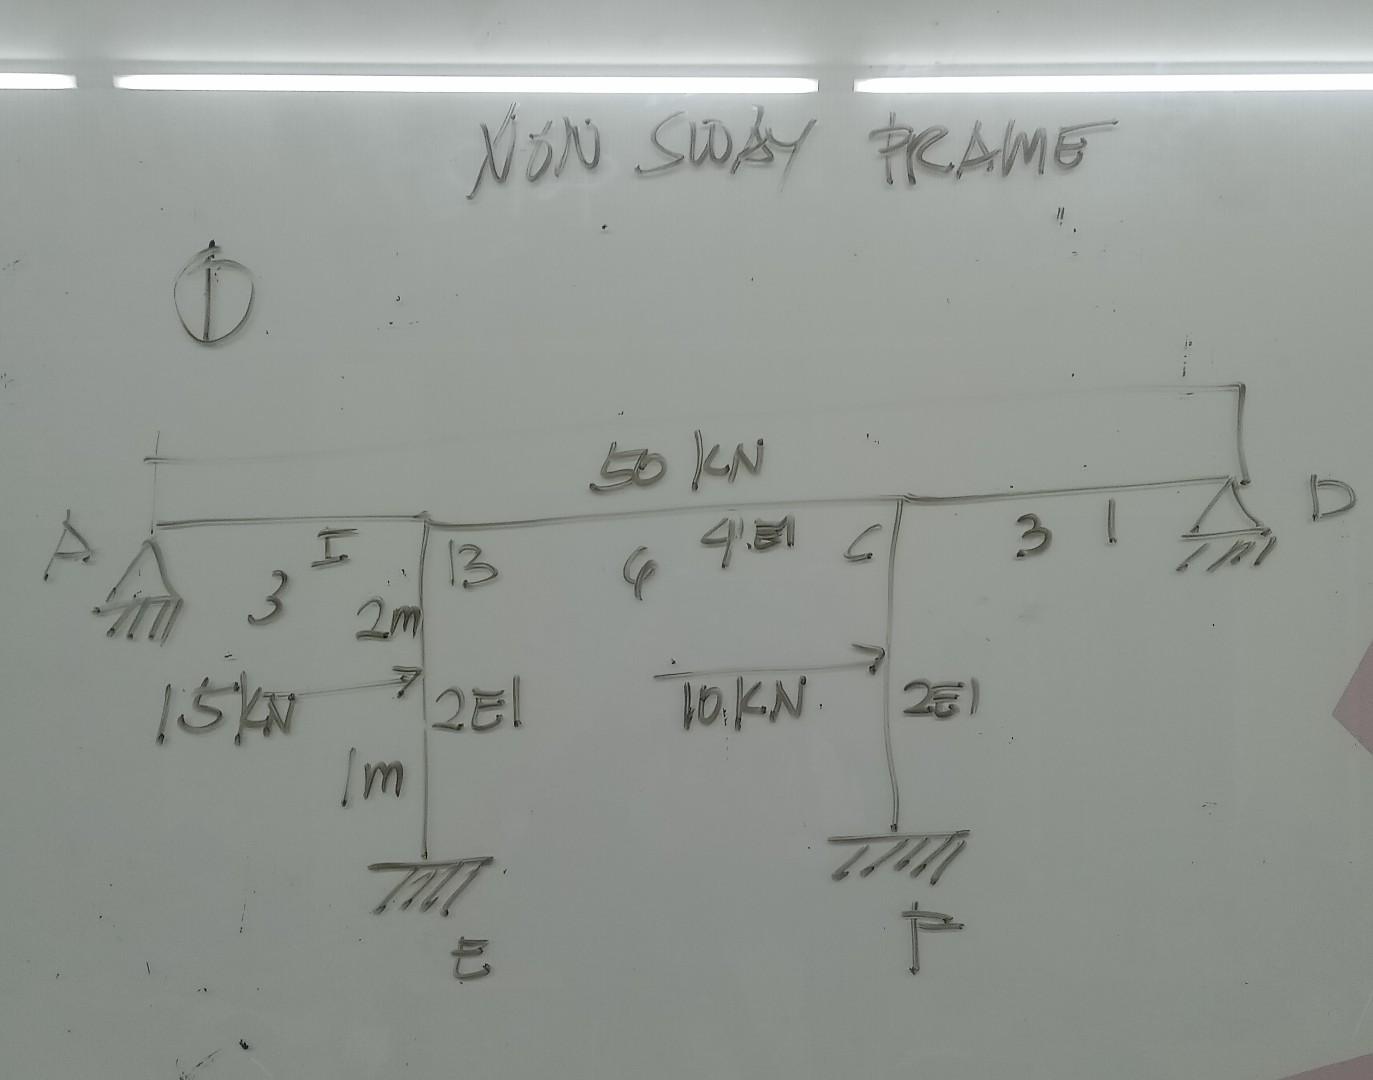 NON SWAY FRAME
1
50 KN
A
I
3
B
4EI
C
3
1
D
2m
15KN
2EI
10 KN
2EI
1m
E
F